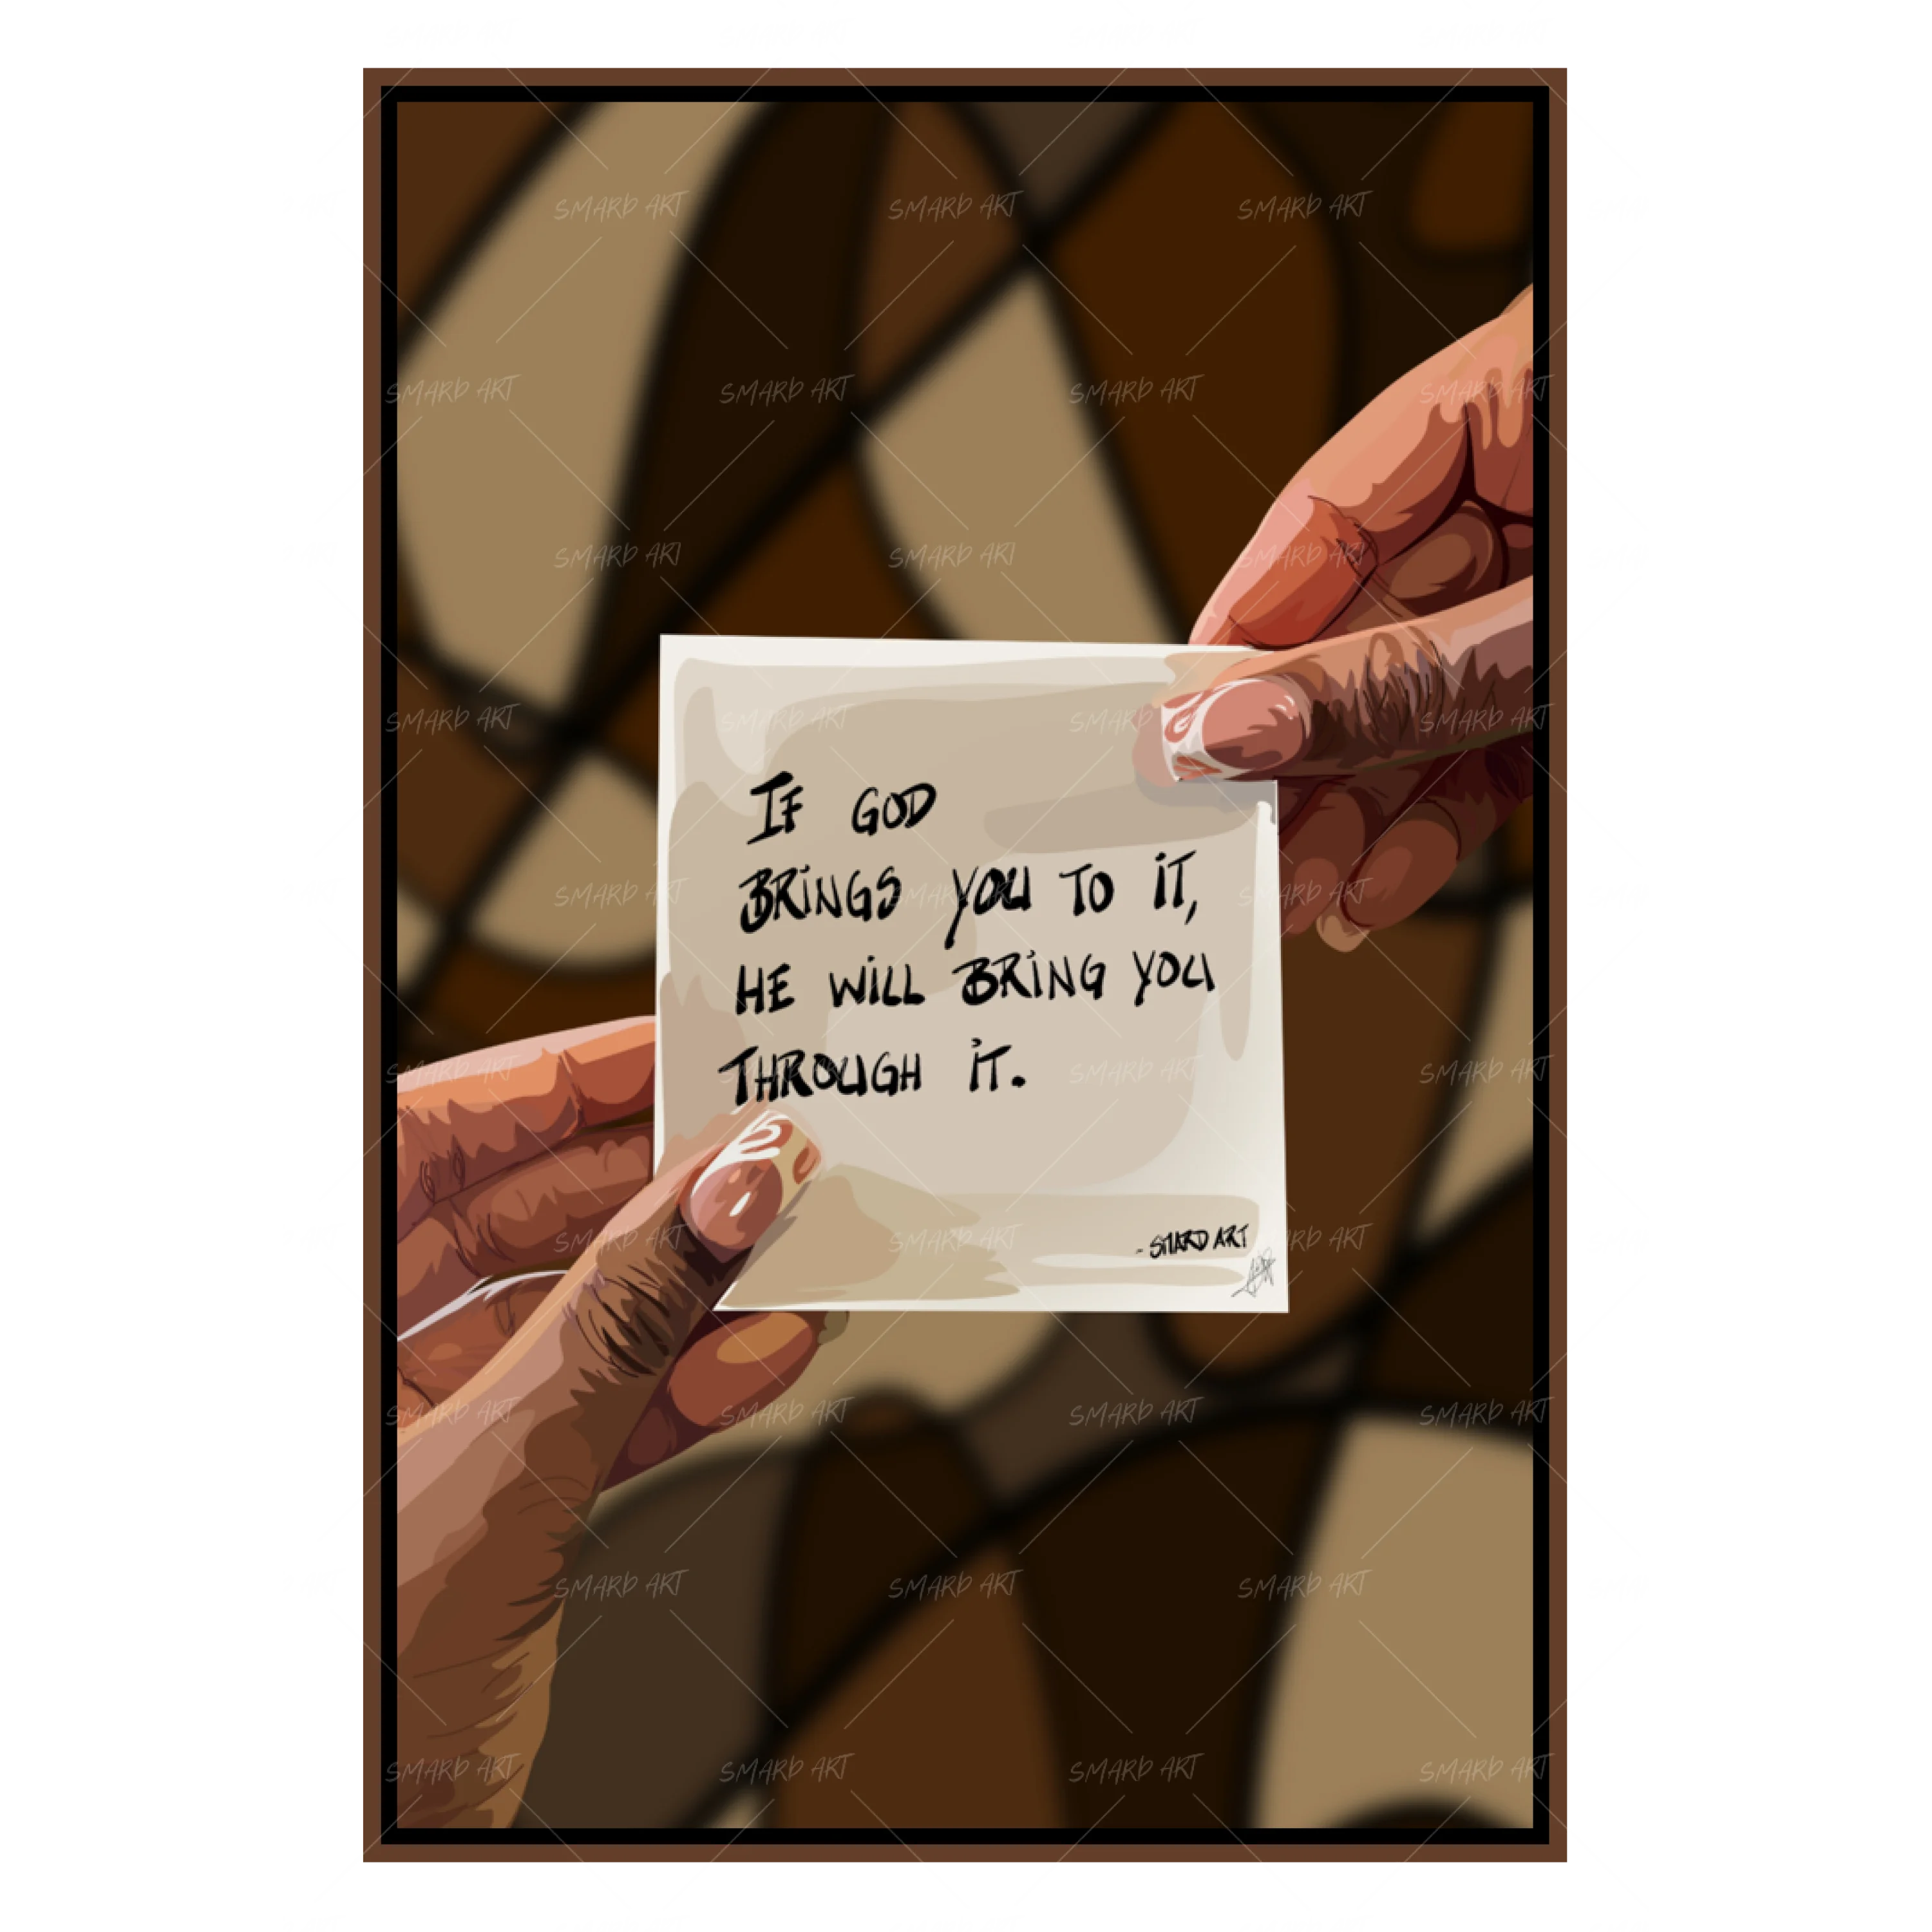 IF GOD
BRINGS YOU TO IT,
HE WILL BRING YOU
THROUGH IT.
- SMARD ART
SMARD ART SMARD ART SMARD ART
SMARD ART SMARD ART SMARD ART SMARD ART
SMARD ART SMARD ART SMARD ART
SMARD ART SMARD ART SMARD ART SMARD ART
SMARD ART SMARD ART SMARD ART
SMARD ART SMARD ART SMARD ART SMARD ART
SMARD ART SMARD ART SMARD ART
SMARD ART SMARD ART SMARD ART SMARD ART
SMARD ART SMARD ART SMARD ART
SMARD ART SMARD ART SMARD ART SMARD ART